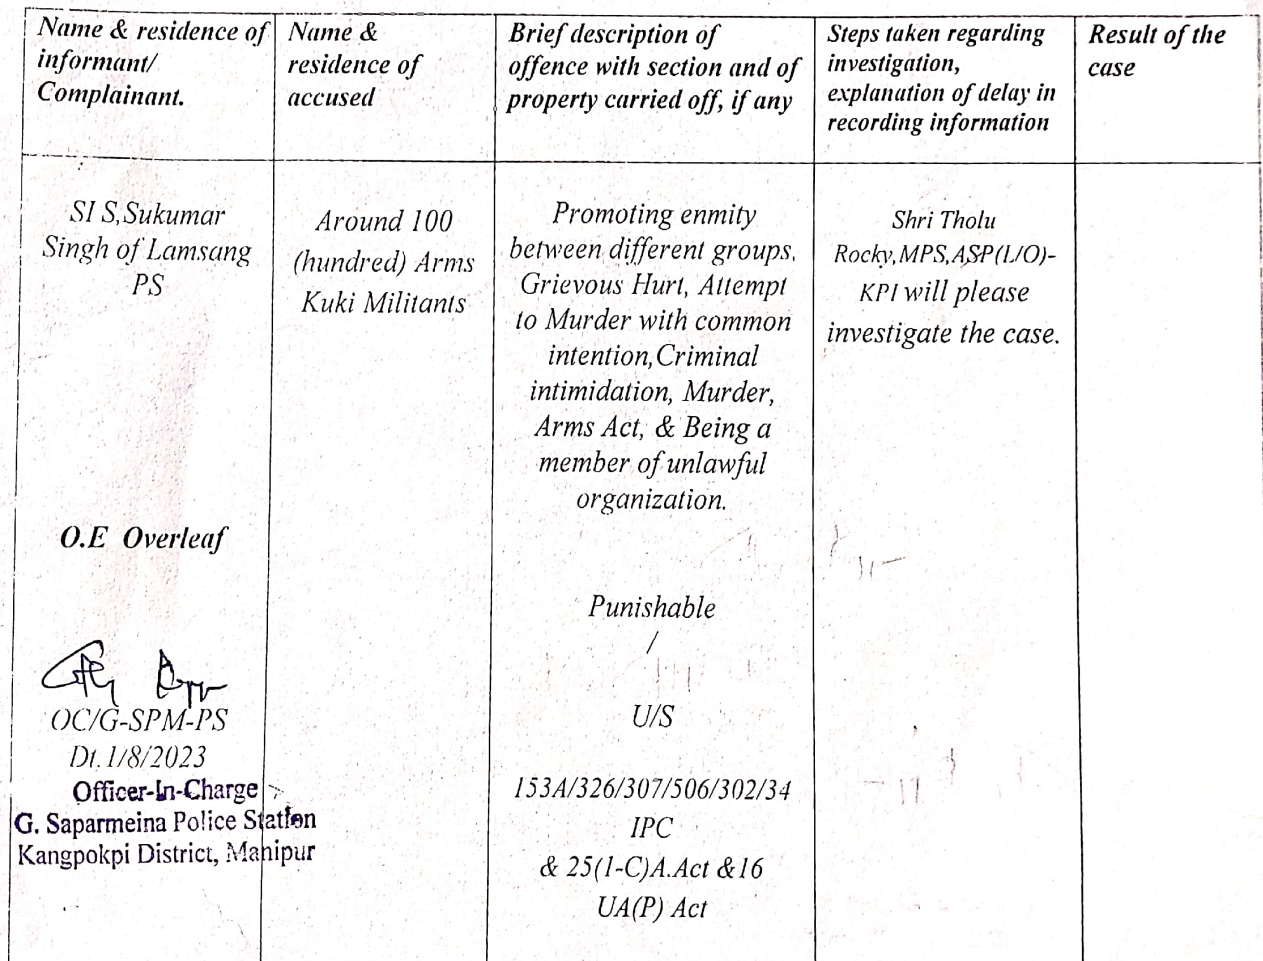 Name & residence of
informant/
Complainant.
Name &
residence of
accused
Brief description of
offence with section and of
property carried off, if any
Steps taken regarding
investigation,
explanation of delay in
recording information
Result of the
case
SI S,Sukumar
Singh of Lamsang
PS
O.E Overleaf
OC/G-SPM-PS
Dt. 1/8/2023
Officer-In-Charge
G. Saparmeina Police Station
Kangpokpi District, Manipur
Around 100
(hundred) Arms
Kuki Militants
Promoting enmity
between different groups,
Grievous Hurt, Attempt
to Murder with common
intention,Criminal
intimidation, Murder,
Arms Act, & Being a
member of unlawful
organization.
Punishable
/
U/S
153A/326/307/506/302/34
IPC
& 25(1-C)A.Act &16
UA(P) Act
Shri Tholu
Rocky,MPS,ASP(L/O)-
KPI will please
investigate the case.